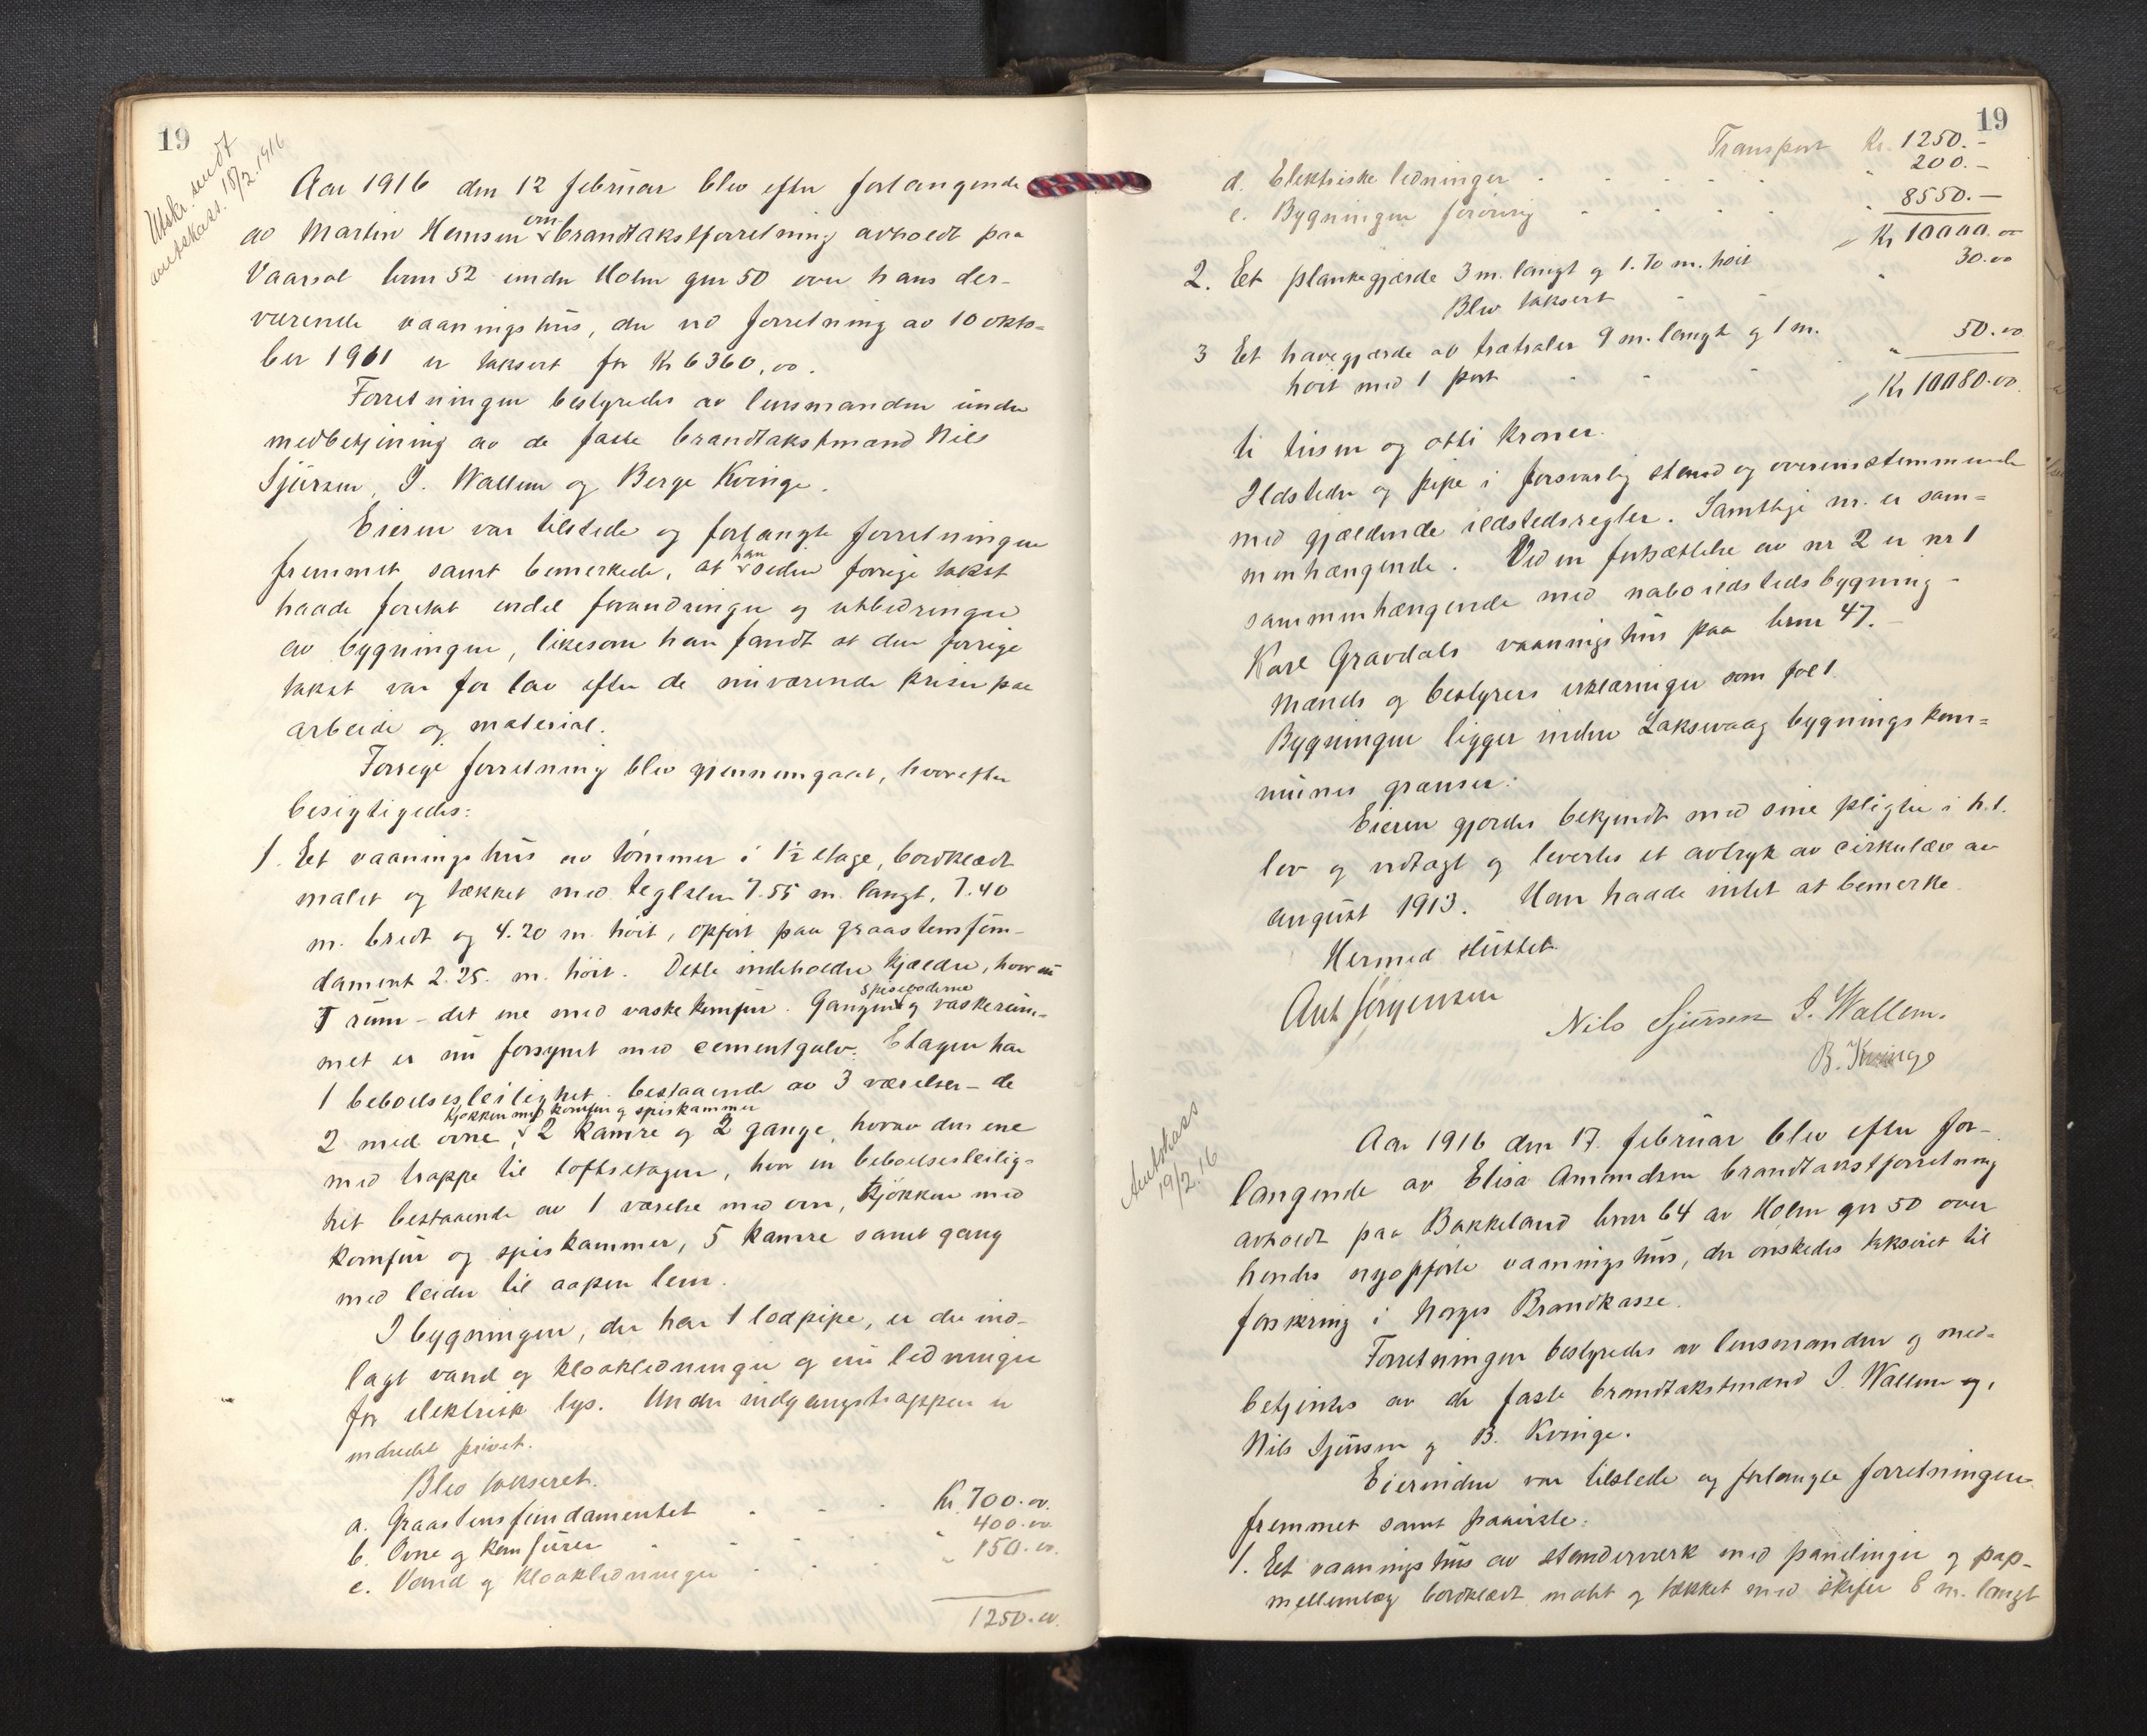 19
Utskr. sendt
amtskass. 18/2. 1916
Aar 1916 den 12 februar blev efter forlangende
av Martin Hansen om brandtakstforretning avholdt paa
Vaarsol brnr 52 under Holm gnr 50 over hans der-
værende vaaningshus, der ved forretning av 10 okto-
ber 1911 er taksert for Kr 6360,00.
Forretningen bestyredes av lensmanden under
medbetjening av de faste brandtakstmænd Nils
Sjursen, I. Wallem og Berge Kvinge.
Eieren var tilstede og forlangte forretningen
fremmet samt bemerkede, at han siden forrige takst
hadde foretat endel forandringer og utbedringer
av bygningen, likesom han fandt at den forrige
takst var for lav efter de nuværende priser paa
arbeide og material.
Forrige forretning blev gjennemgaat, hvorefter
besigtigedes:
1. Eet vaaningshus av tømmer i 1½ etage, bordklædt
malet og tækket med teglsten 7.55 m. langt, 7.40
m. bredt og 4.20 m. høit, opført paa graastensfun-
dament 2.25. m. høit. Dette indeholder kjælder, hvor nu
rum - det ene med vaskekomfur. Gangen spisebodene og vaskerum-
met er nu forsynet med cementgulv. Etagen har
1 beboelsesleilighet bestaaende av 3 værelser - de
2 med ovne, kjøkken med komfur og spiskammer 2 kamre og 2 gange, hvorav den ene
med trappe til loftsetagen, hvor en beboelsesleilig-
het bestaaende av 1 værelse med ovn, kjøkken med
komfur og spiskammer, 5 kamre samt gang
med leider til aapen lem.
I bygningen, der har 1 lodpipe, er der ind-
lagt vand og kloakledninger og nu ledninger
for elektrisk lys. Under indgangstrappen er
indredet privet.
Blev takseret.
a. Graastensfundamentet - - - Kr. 700.00.
b. Ovne og komfurer - - - " 400.00
c. Vand og kloakledninger - - - " 150.00.
1250.00.
19
Transport Kr. 1250.-
d. Elektriske ledninger - - - - " 200.-
e. Bygningen forøvrig - - - - " 8550.-
Kr 10000.00
2. Eet plankegjærde 3 m. langt og 1.70 m. høit
Blev taksert - - - " 30.00
3 Eet havegjærde av træstaler 9 m. langt og 1 m.
høit med 1 port - - - " 50.00
Kr 10080.00.
ti tusen og otti kroner.
Ildsteder og pipe i forsvarlig stand og overensstemmende
med gjældende ildstedsregler. Samtlige nr. er sam-
menhængende. Ved en fortsættelse av nr 2 er nr 1
sammenhængende med naboildstedsbygning -
Karl Gravdals vaaningshus paa brnr 47. -
Mænds og bestyrers erklæringer som fol 1.
Bygningen ligger inden Laksevaag bygningskom-
munes grænser.
Eieren gjordes bekjendt med sine pligter i h.t.
lov og vedtægt og levertes et avtryk av cirkulær av
august 1913. Han hadde intet at bemerke.
Hermed sluttet.
Ant Jørgensen
Nils Sjursen I. Wallem.
B. Kvinge
Amtskass
19/2. 16
Aar 1916 den 17. februar blev efter for-
langende av Elisa Amundsen brandtakstforretning
avholdt paa Bakkeland brnr 64 av Holm gnr 50 over
hendes nyopførte vaaningshus, der ønskedes takseret til
forsikring i Norges Brandkasse.
Forretningen bestyredes av lensmanden og med-
betjentes av de faste brandtakstmænd I. Wallem og,
Nils Sjursen og B. Kvinge.
Eierinden var tilstede og forlangte forretningen
fremmet samt paaviste:
1. Eet vaaningshus av stenderverk med panelinger og pap-
mellemlag bordklædt, malet og tækket med skifer 8 m. langt